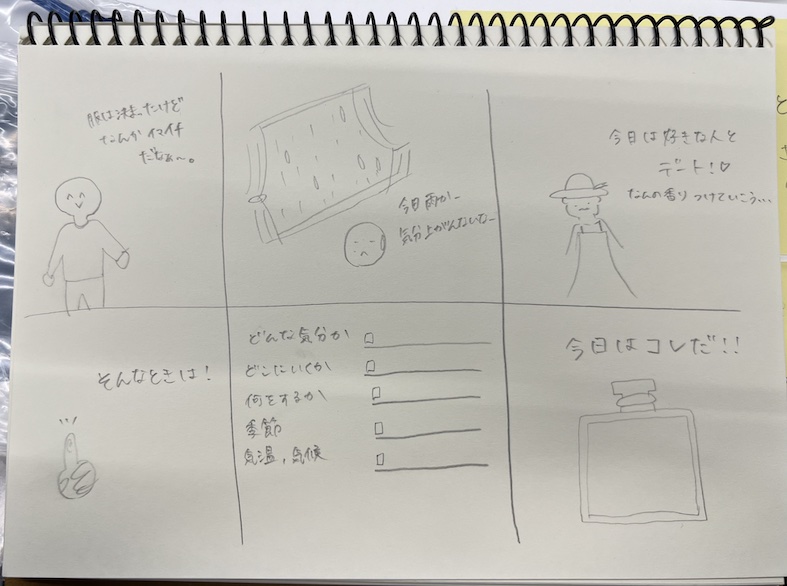 服は決まったけど
なんかイマイチ
だなぁ〜。
今日雨か〜
気分上がんないな〜
今日は好きな人と
デート!♡
なんの香りつけていこう...
そんなときは!
どんな気分か
どこにいくか
何をするか
季節
気温,気候
今日はコレだ!!